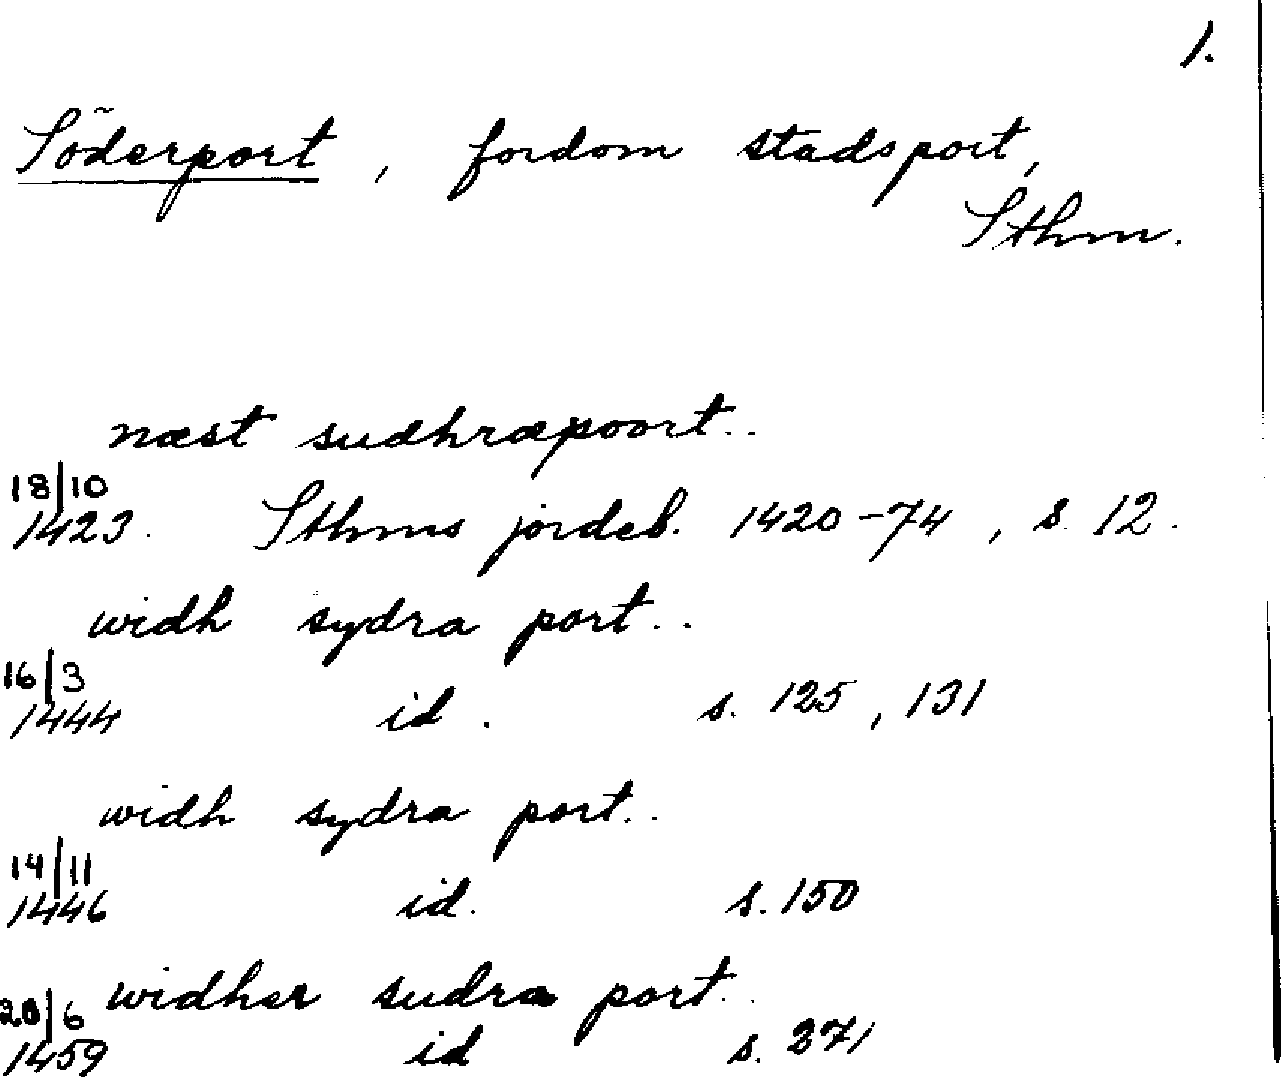 1.
Söderport, fordom stadsport,
Sthm.
næst sudhræpoort..
18/10
1423. Sthms jordeb. 1420-74, s. 12.
widh sydra port..
16/3
1444 id. s. 125, 131
widh sydra port..
14/11
1446 id. s. 150
widher sudra port..
20/6
1459 id s. 271